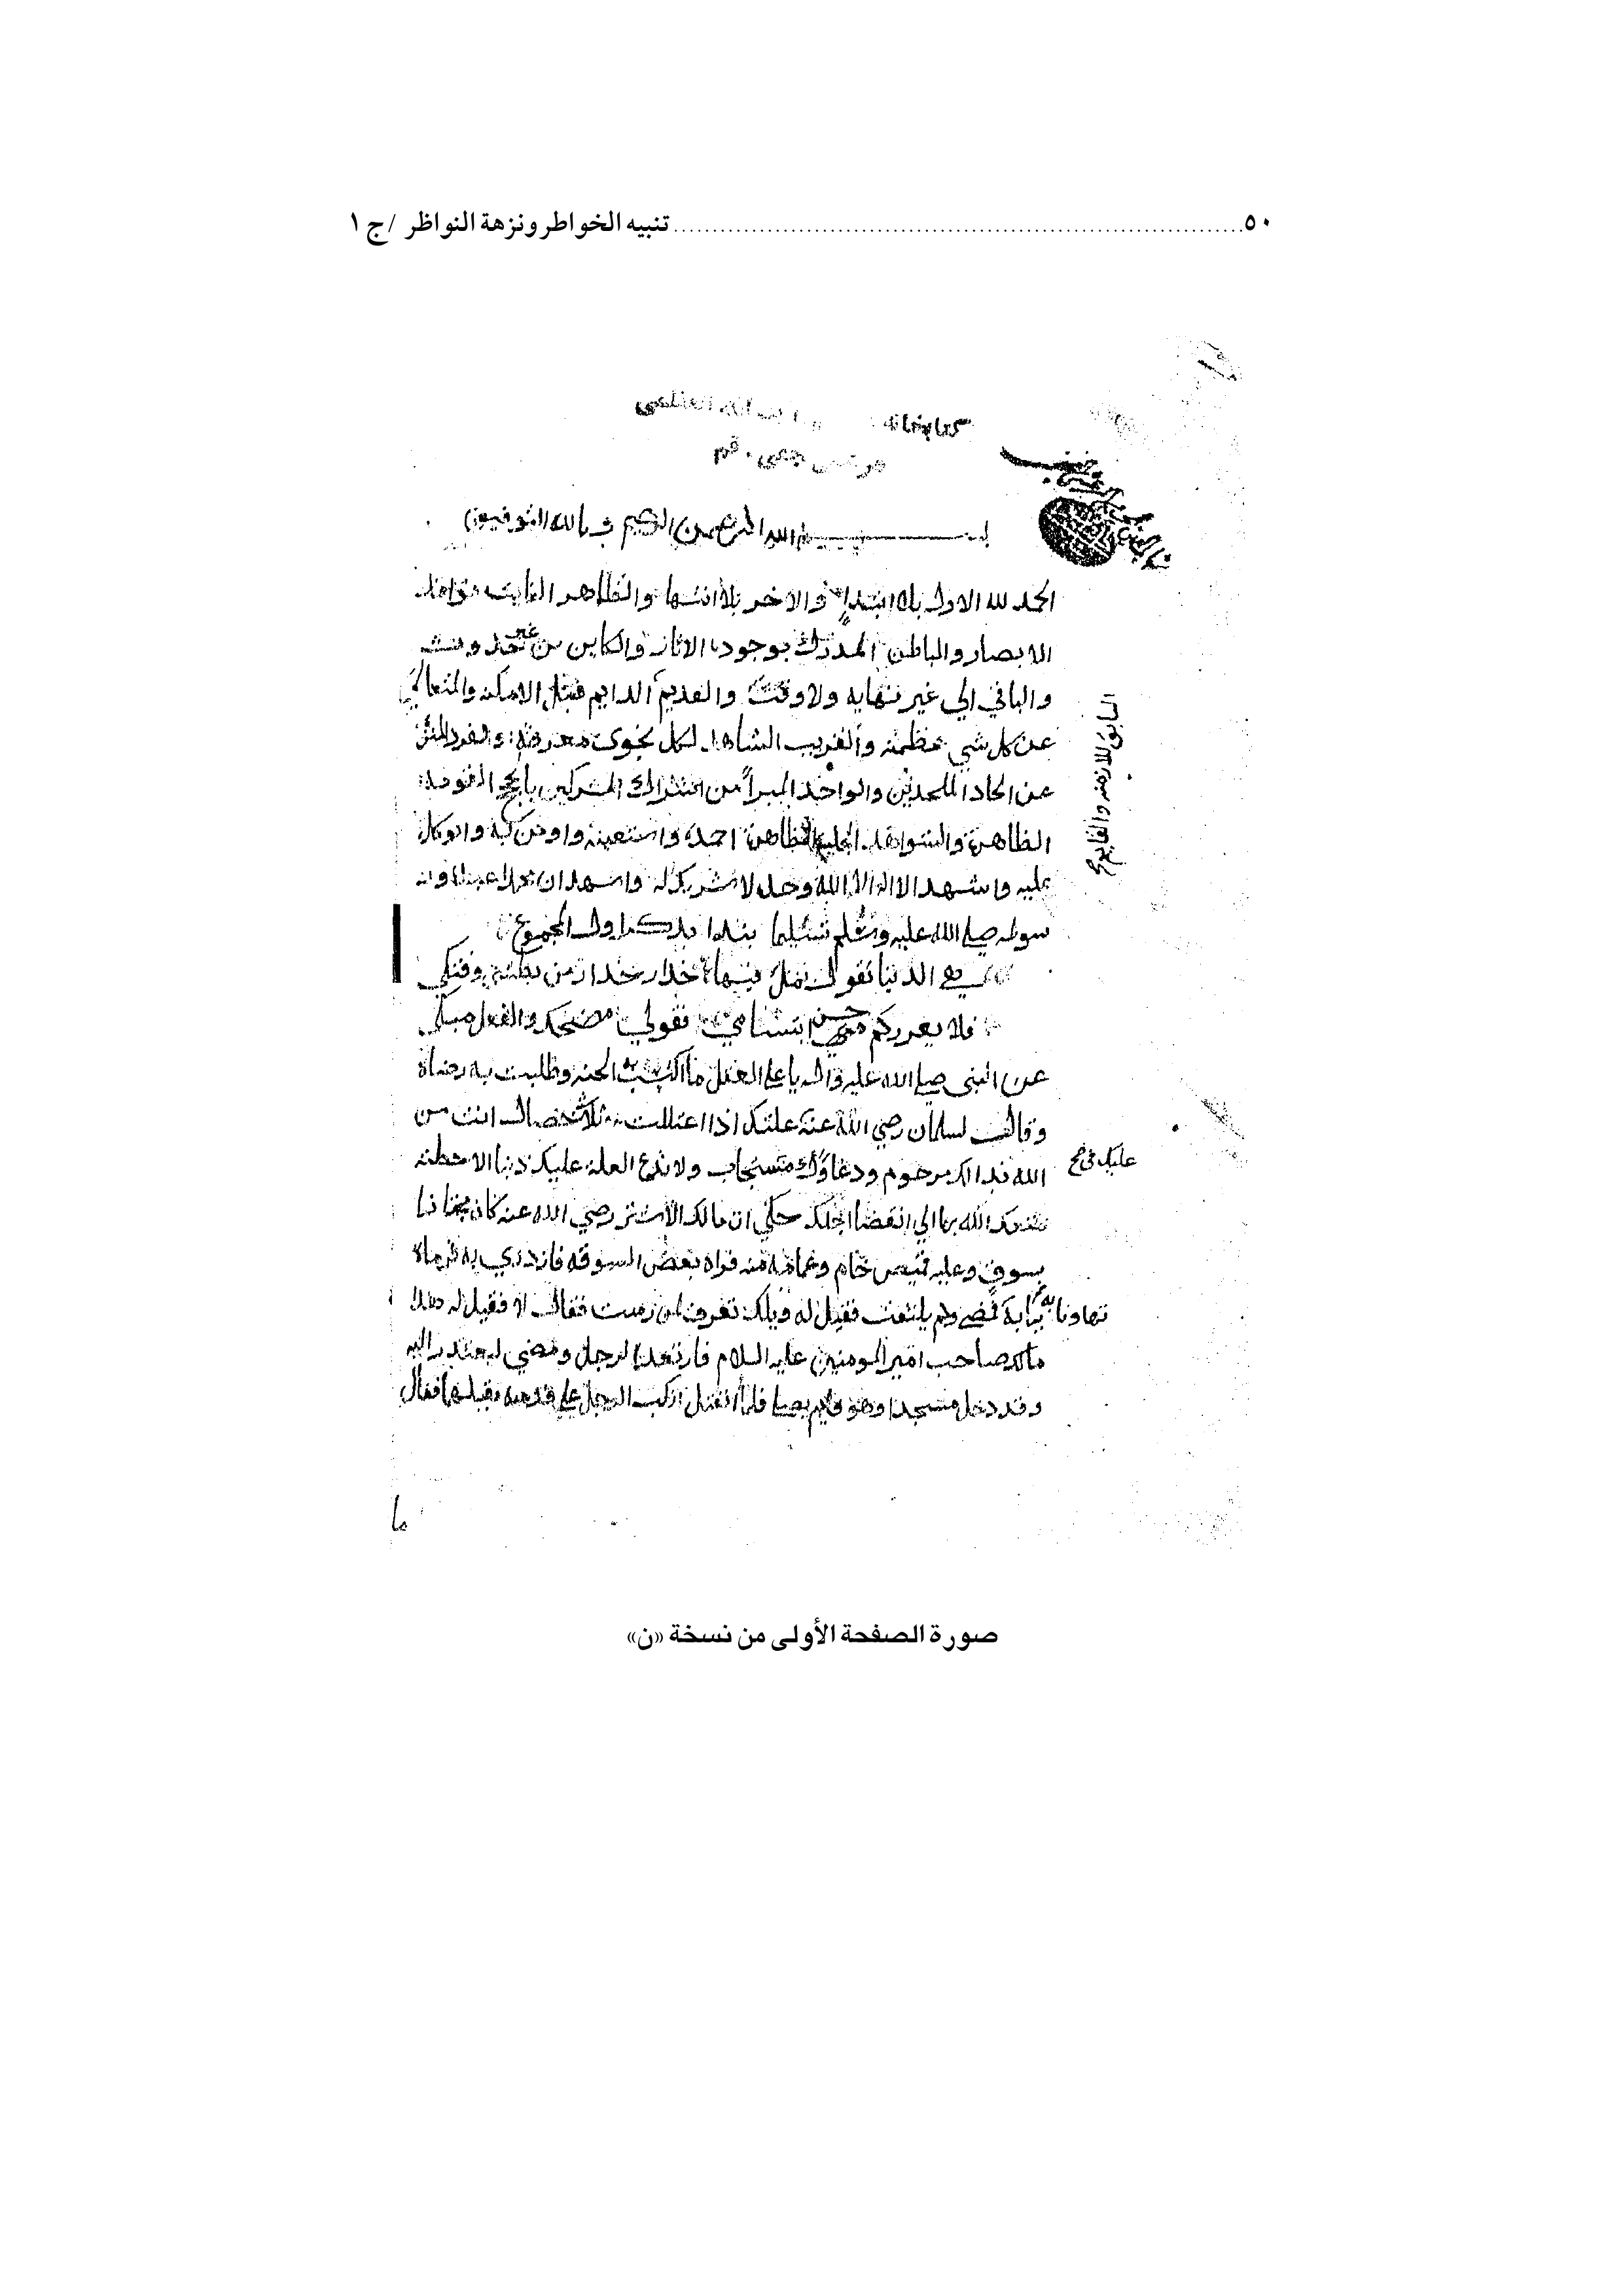 ٥٠ ........ تنبيه الخواطر ونزهة النواظر / ج ١
كتابخانه
قم
بسم الله الرحمن الرحيم وبالله التوفيق
الحمد لله الاول بلا ابتداء والاخر بلا انتها والظاهر
الابصار والباطن المدرك بوجود الاثار والكاين من غير
والباقي الي غير نهايه ولا وقت والقديم الدايم قبل الامكنه والمتعالي
السابق للازمنه
عن كل شي عظمته والقريب الشاهد لكل نجوى والفرد المنزه
عن الحاد الملحدين والواحد المبرأ من اشتراك المشركين
الظاهرة والشواهد احمده واستعينه واومن به واتوكل
عليه واشهد الا اله الا الله وحده لا شريك له واشهد ان محمدا عبده ور
سوله صلى الله عليه وسلم تسليما
هي الدنيا تقول بملء فيها حذار حذار من بطشي وفتكي
فلا يغرركم حسن ابتسامي فقولي مضحك والفعل مبكي
عن النبي صلى الله عليه واله يا علي العقل ما اكتسبت به الجنه وطلبت به رضاه
وقال لسلمان رضي الله عنه علتك اذا اعتللت ثلاث خصال انت من
الله بذلك مرحوم ودعاؤك مستجاب ولا تدع العلة عليك ذنبا الا حطته
عليك في
متعك الله بها الي انقضا اجلك حكي ان مالك الاشتر رضي الله عنه كان مجتازا
بسوق وعليه قميص خام وعمامة منه فراه بعض السوقه فازدري به فرماه
تهاونا به فمضي ولم يلتفت فقيل له ويلك تعرف لمن رميت فقال لا فقيل له هذا
مالك صاحب امير المومنين عليه السلام فارتعد الرجل ومضي ليعتذر اليه
وقد دخل مسجدا وهو قايم يصلي فلما انفتل انكب الرجل علي قدميه يقبلهما فقال
ما
صورة الصفحة الأولى من نسخة «ن»